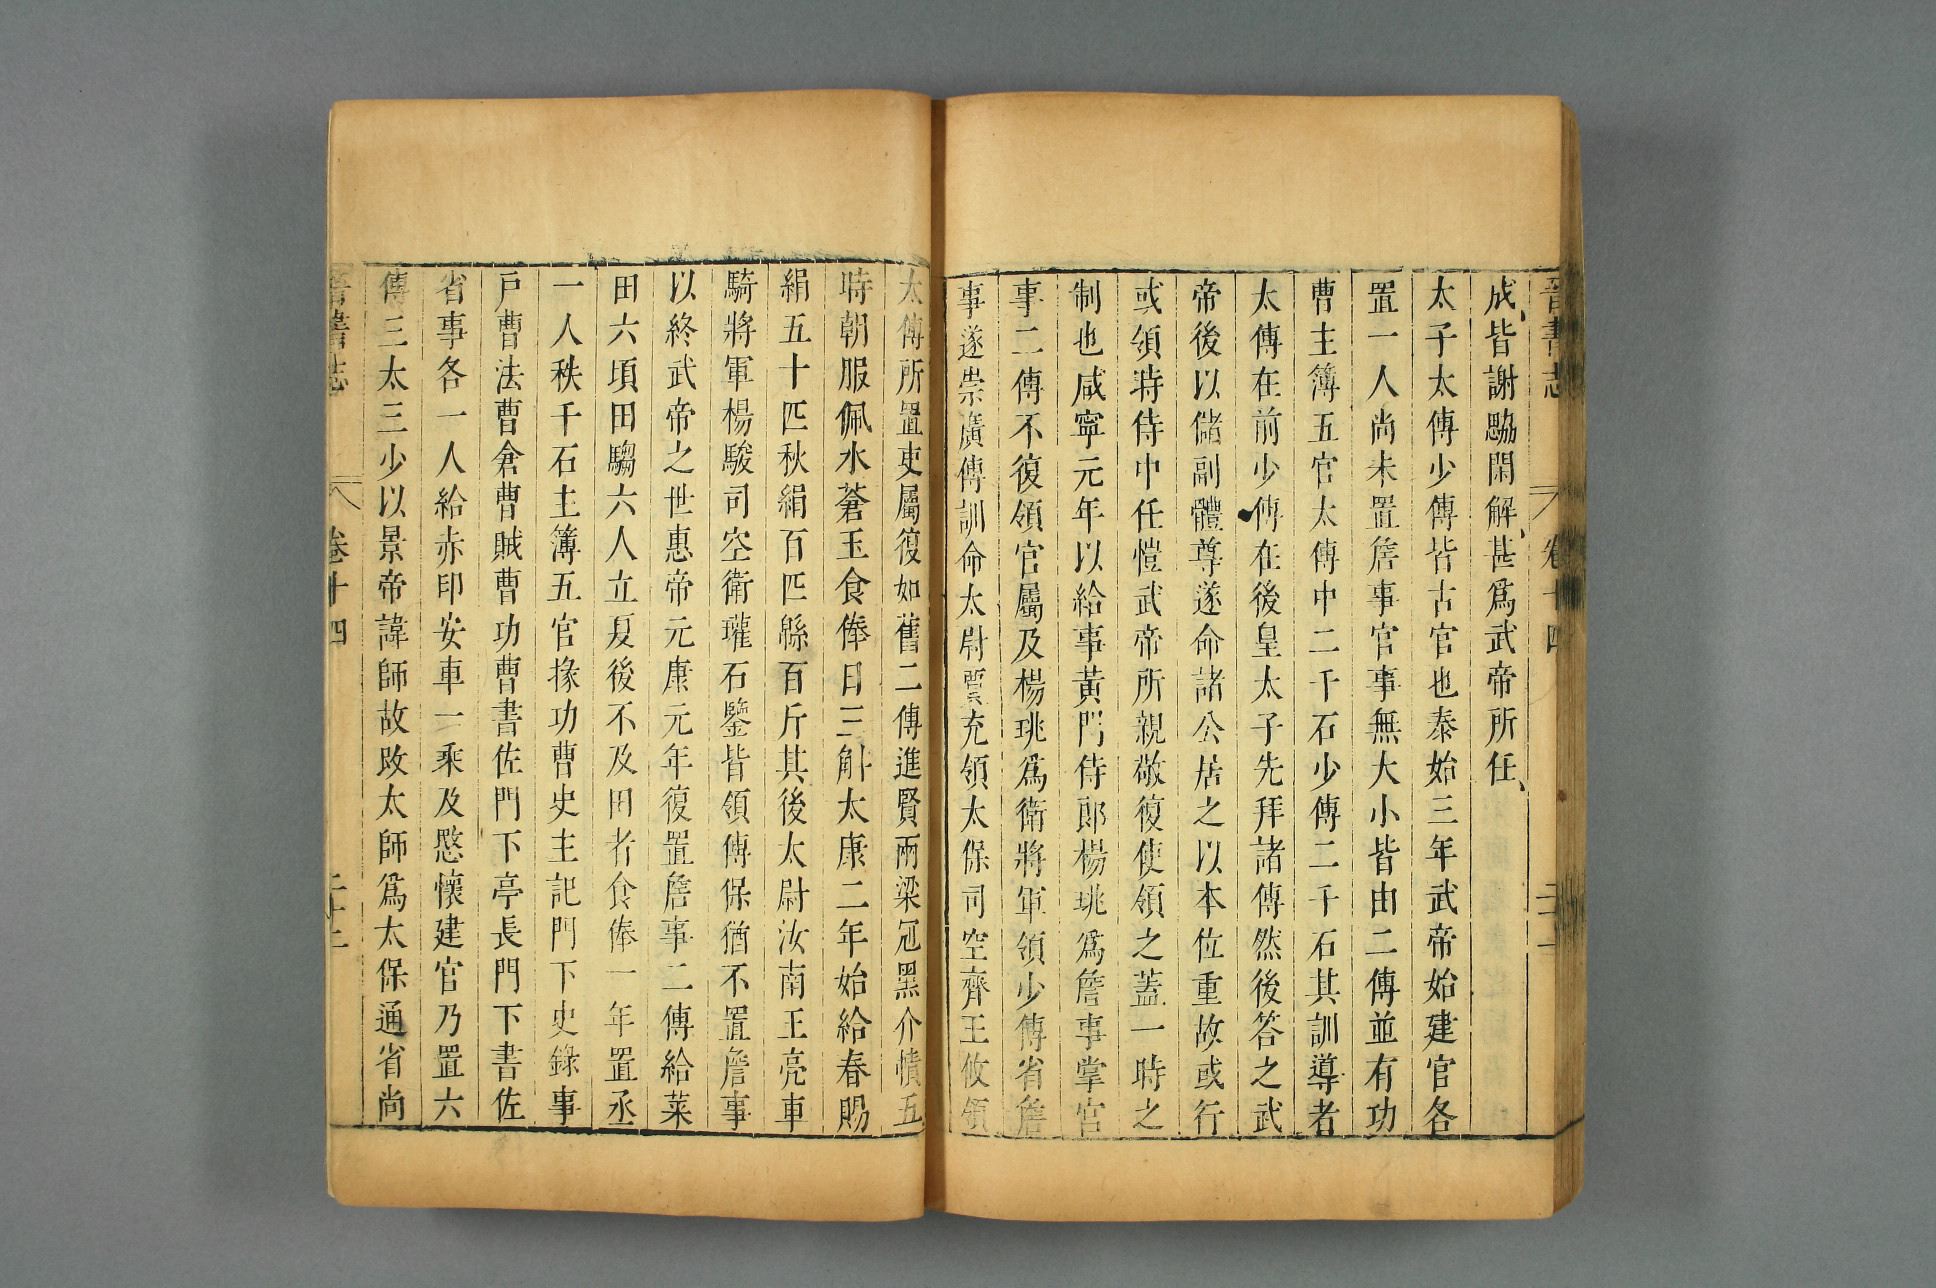 晉書志 卷十四 二十一
成皆謝勔閑解甚爲武帝所任
太子太傅少傅皆古官也泰始三年武帝始建官各
置一人尚未置詹事官事無大小皆由二傅並有功
曹主簿五官太傅中二千石少傅二千石其訓導者
太傅在前少傅在後皇太子先拜諸傅然後答之武
帝後以儲副體尊遂命諸公居之以本位重故或行
或領時侍中任愷武帝所親敬復使領之蓋一時之
制也咸寧元年以給事黃門侍郎楊珧爲詹事掌官
事二傅不復領官屬及楊珧爲衛將軍領少傅省詹
事遂崇廣傅訓命太尉賈充領太保司空齊王攸領
太傅所置吏屬復如舊二傅進賢兩梁冠黑介幘五
時朝服佩水蒼玉食俸日三斛太康二年始給春賜
絹五十匹秋絹百匹緜百斤其後太尉汝南王亮車
騎將軍楊駿司空衛瓘石鑒皆領傅保猶不置詹事
以終武帝之世惠帝元康元年復置詹事二傅給菜
田六頃田騶六人立夏後不及田者食俸一年置丞
一人秩千石主簿五官掾功曹史主記門下史錄事
戶曹法曹倉曹賊曹功曹書佐門下亭長門下書佐
省事各一人給赤印安車一乘及愍懷建官乃置六
傅三太三少以景帝諱師故改太師爲太保通省尚
晉書志 卷十四 二十二